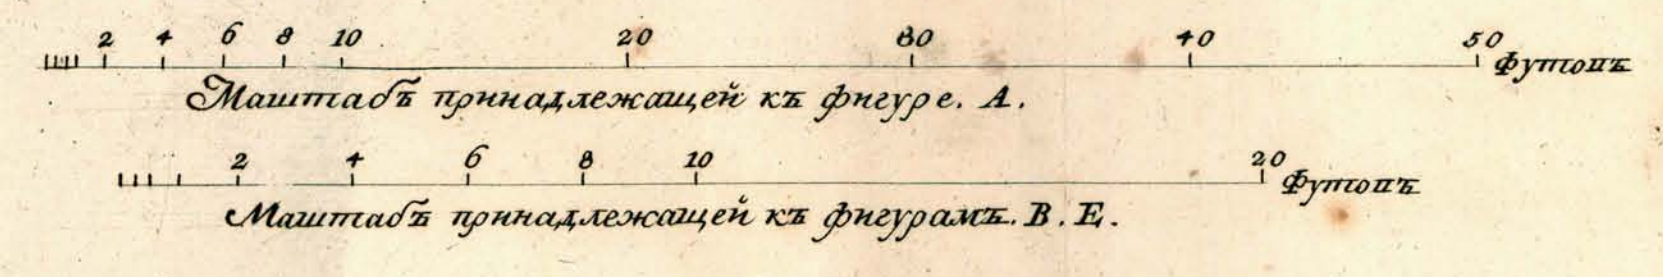 2 4 6 8 10 20 30 40 50 Футовъ
Маштабъ принадлежащей къ фигуре. А.
2 4 6 8 10 20 Футовъ
Маштабъ принадлежащей къ фигурамъ. В. Е.